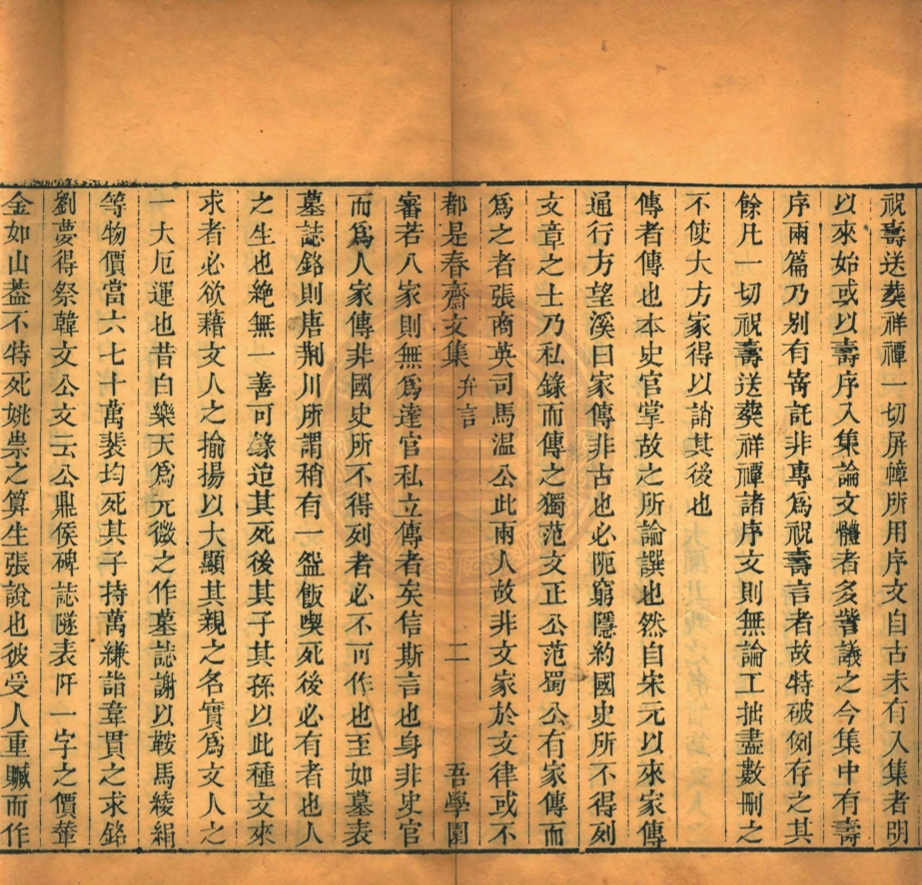 祝壽送葬祥禫一切屏幛所用序文自古未有入集者明
以來始或以壽序入集論文體者多訾議之今集中有壽
序兩篇乃别有寄託非專爲祝壽言者故特破例存之其
餘凡一切祝壽送葬祥禫諸序文則無論工拙盡數刪之
不使大方家得以誚其後也
傳者傳也本史官掌故之所論譔也然自宋元以來家傳
通行方望溪曰家傳非古也必阨窮隱約國史所不得列
文章之士乃私錄而傳之獨范文正公范蜀公有家傳而
爲之者張商英司馬温公此兩人故非文家於文律或不
都是春齋文集 弁言 二 吾學園
審若八家則無爲達官私立傳者矣信斯言也身非史官
而爲人家傳非國史所不得列者必不可作也至如墓表
墓誌銘則唐荆川所謂稍有一盌飯喫死後必有者也人
之生也絶無一善可錄迨其死後其子其孫以此種文來
求者必欲藉文人之揄揚以大顯其親之名實爲文人之
一大厄運也昔白樂天爲元微之作墓誌謝以鞍馬綾絹
等物價當六七十萬裴均死其子持萬縑詣韋貫之求銘
劉夢得祭韓文公文云公鼎侯碑誌隧表阡一字之價輦
金如山葢不特死姚祟之算生張說也彼受人重贓而作